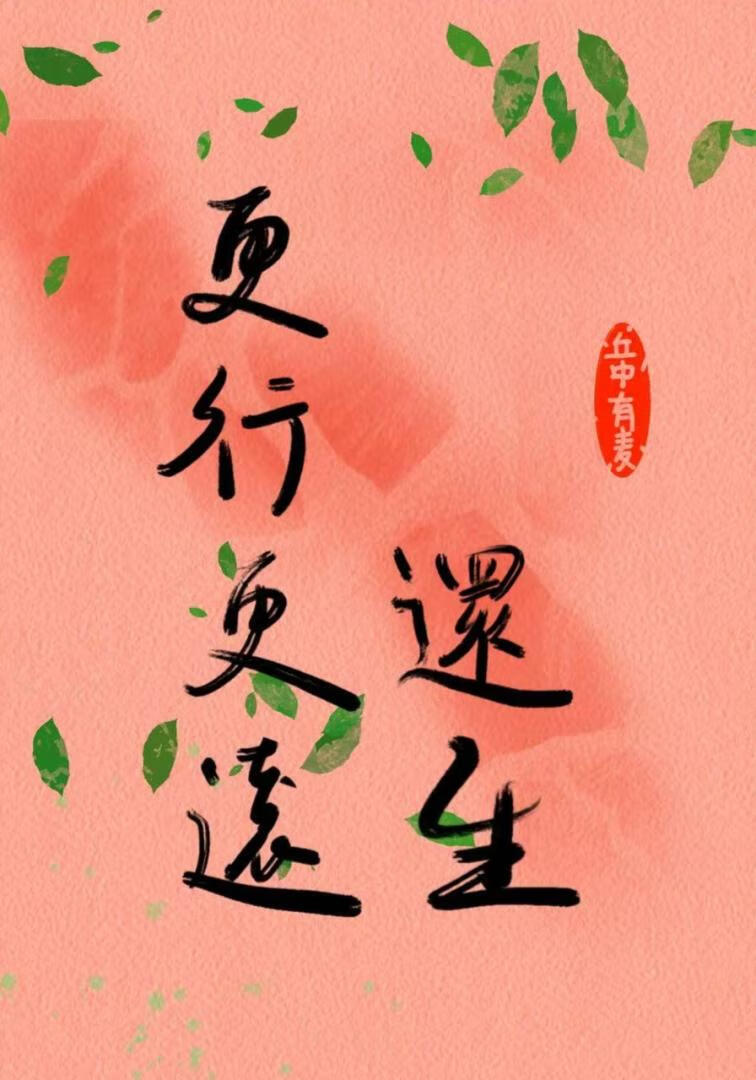 更行更遠
還生
丘中有麦